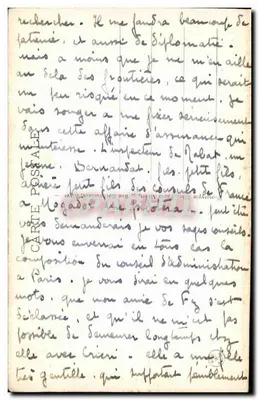 rechercher. Il me faudra beaucoup de
patience, et aussi de diplomatie.
mais a moins que je ne m'en aille
au dela des frontières, ce qui serait
un peu risqué en ce moment. Je
vais songer a me fixer serieusement
dans cette affaire d'assurance qui
m'interesse. L'inspecteur de Rabat, un
jeune Bernandat, petit fils
arrière petit fils des consuls de France
a Mogador
vous demanderais je vos sages conseils.
Je vous enverrai en tous cas la
composition du conseil d'administration
a Paris. Je vous dirai en quelques
mots, que mon amie de Fez s'est
déclassée, et qu'il ne m'est pas
possible de demeurer longtemps chez
elle avec elle a une fille
très gentille qui supportait peniblement
CARTE POSTALE